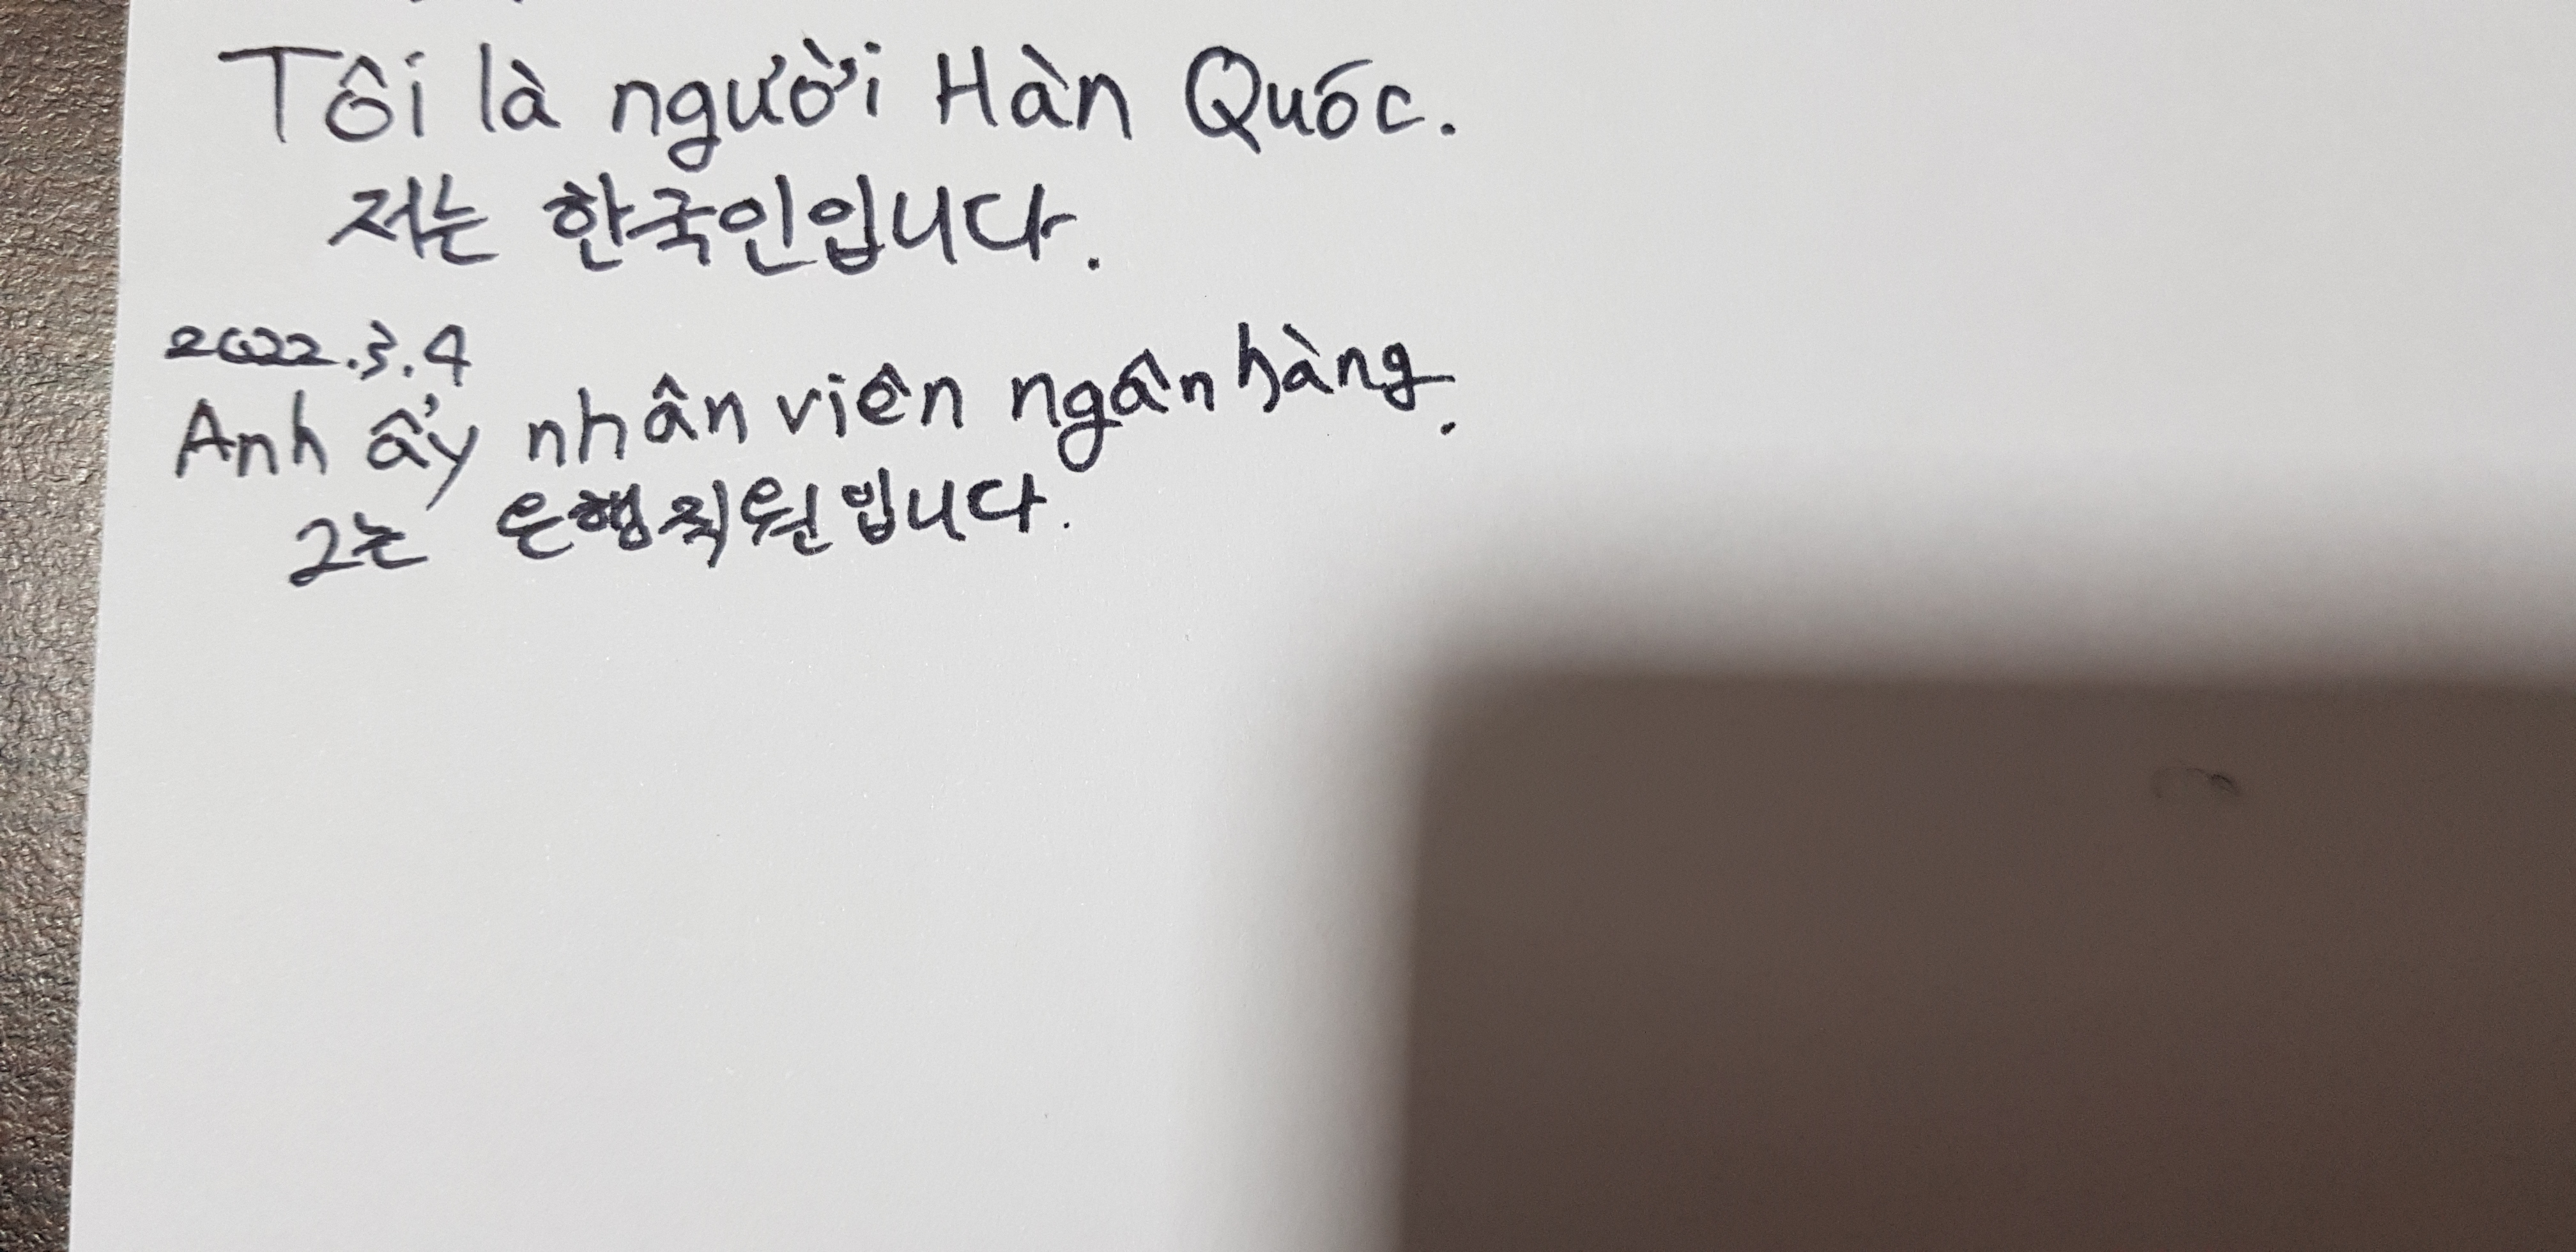 Tôi là người Hàn Quốc.
저는 한국인입니다.
2022.3.4
Anh ẩy nhân viên ngân hàng.
그는 은행직원입니다.